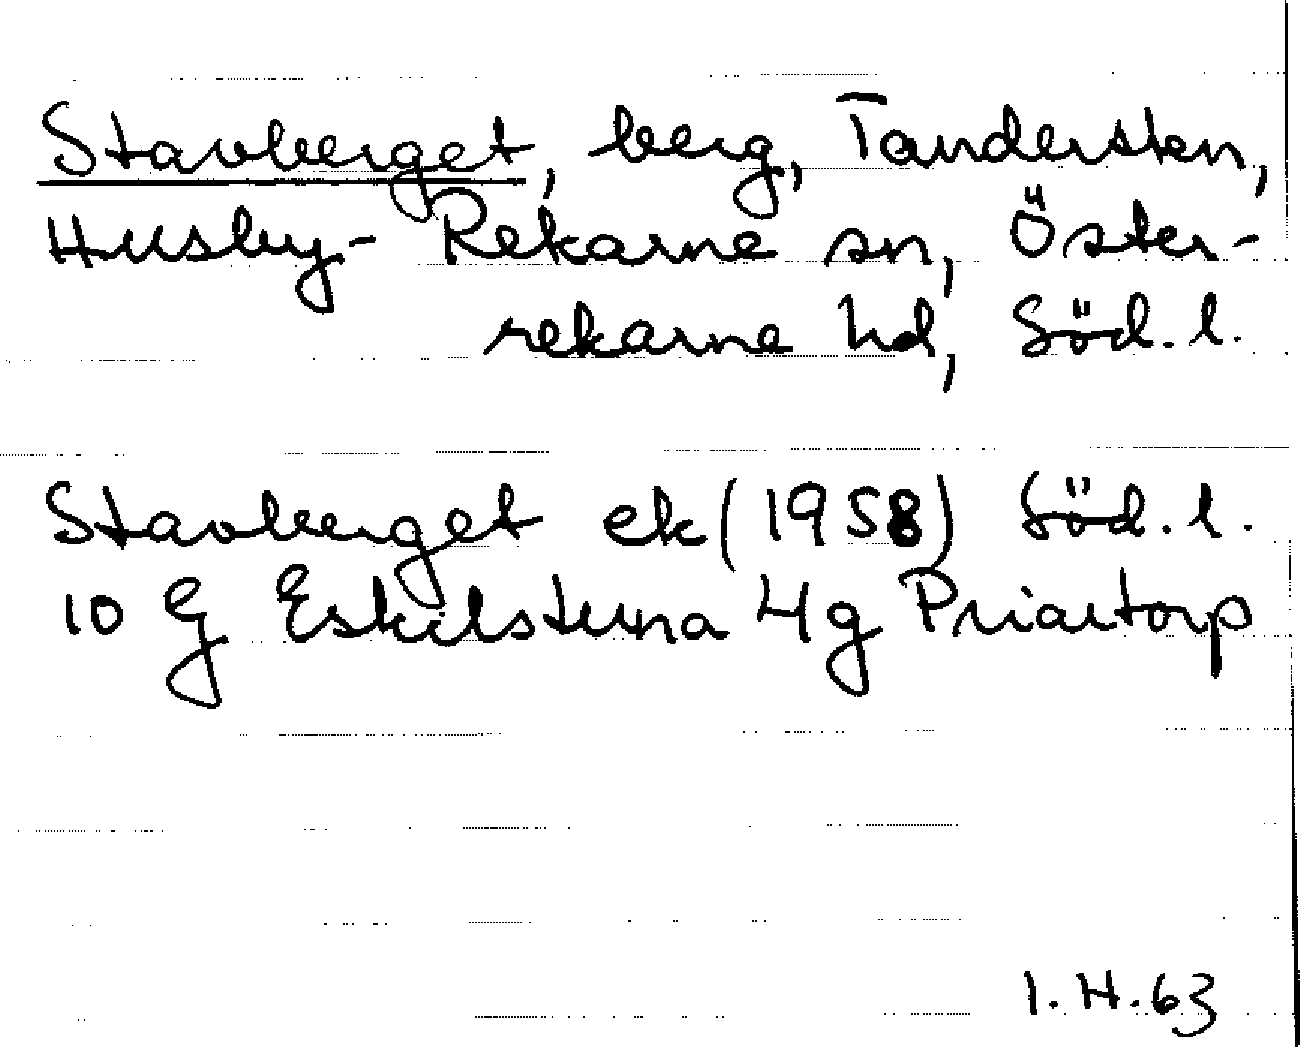 Stavberget, berg, Tandersten,
Husby-Rekarne sn, Öster-
rekarne hd, Söd. l.
Stavberget ek (1958) Söd. l.
10 G Eskilstuna 4g Priartorp
I. H. 63